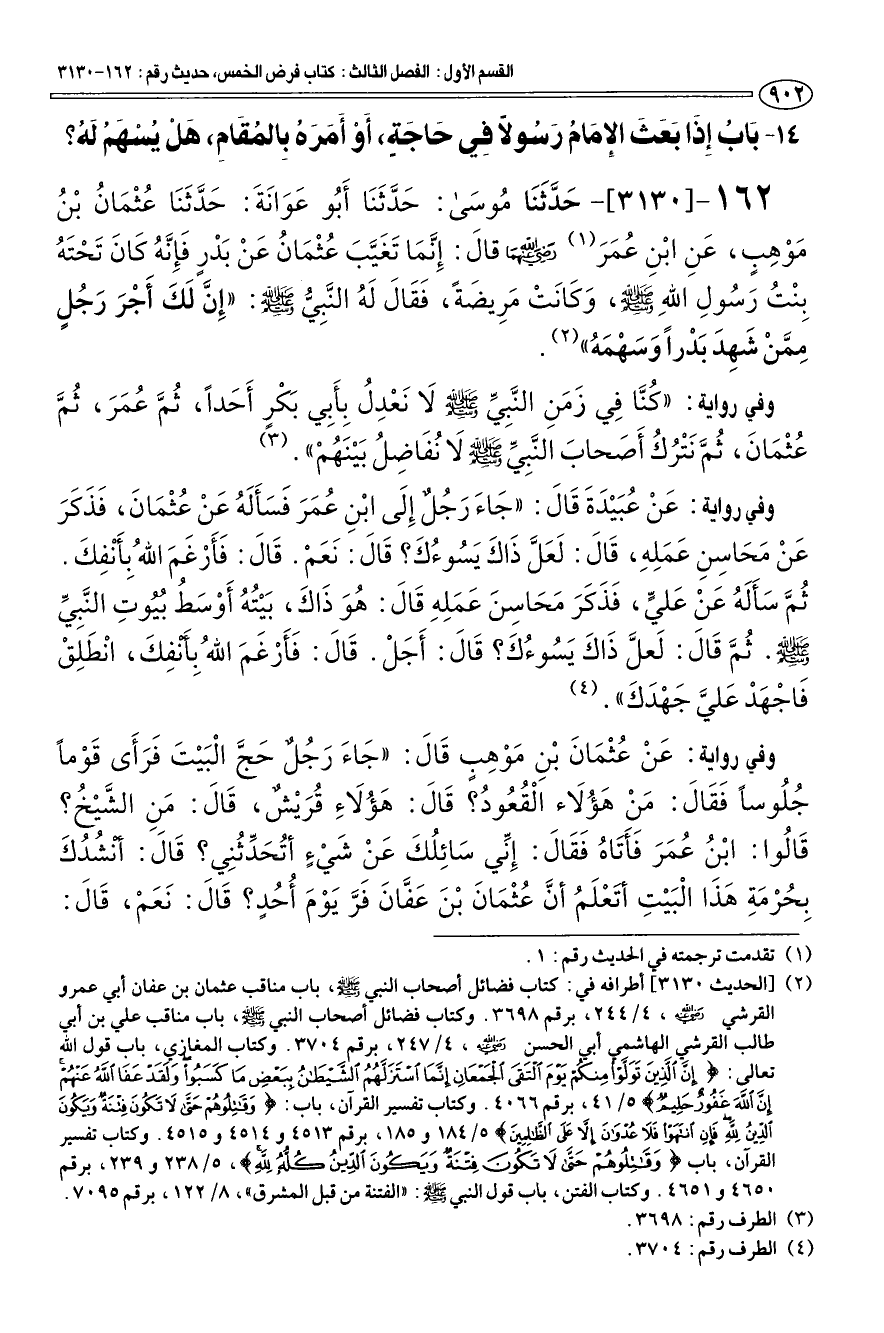 القسم الأول: الفصل الثالث: كتاب فرض الخمس، حديث رقم: ١٦٢-٣١٣٠
٩٠٢
١٤- بَابُ إِذَا بَعَثَ الإِمَامُ رَسُولاً فِي حَاجَةٍ، أَوْ أَمَرَهُ بِالمُقَامِ، هَلْ يُسْهَمُ لَهُ؟
١٦٢-[٣١٣٠]- حَدَّثَنَا مُوسَىٰ: حَدَّثَنَا أَبُو عَوَانَةَ: حَدَّثَنَا عُثْمَانُ بْنُ
مَوْهِبٍ، عَنِ ابْنِ عُمَرَ(١) رضي الله عنهما قالَ: إِنَّمَا تَغَيَّبَ عُثْمَانُ عَنْ بَدْرٍ فَإِنَّهُ كَانَ تَحْتَهُ
بِنْتُ رَسُولِ اللهِ ﷺ، وَكَانَتْ مَرِيضَةً، فَقَالَ لَهُ النَّبِيُّ ﷺ: «إِنَّ لَكَ أَجْرَ رَجُلٍ
مِمَّنْ شَهِدَ بَدْراً وَسَهْمَهُ»(٢).
وفي رواية: «كُنَّا فِي زَمَنِ النَّبِيِّ ﷺ لَا نَعْدِلُ بِأَبِي بَكْرٍ أَحَداً، ثُمَّ عُمَرَ، ثُمَّ
عُثْمَانَ، ثُمَّ نَتْرُكُ أَصَحابَ النَّبِيِّ ﷺ لَا نُفَاضِلُ بَيْنَهُمْ».(٣)
وفي رواية: عَنْ عُبَيْدَةَ قَالَ: «جَاءَ رَجُلٌ إِلَى ابْنِ عُمَرَ فَسَأَلَهُ عَنْ عُثْمَانَ، فَذَكَرَ
عَنْ مَحَاسِنِ عَمَلِهِ، قَالَ: لَعَلَّ ذَاكَ يَسُوءُكَ؟ قَالَ: نَعَمْ. قَالَ: فَأَرْغَمَ اللهُ بِأَنْفِكَ.
ثُمَّ سَأَلَهُ عَنْ عَلِيٍّ، فَذَكَرَ مَحَاسِنَ عَمَلِهِ قَالَ: هُوَ ذَاكَ، بَيْتُهُ أَوْسَطُ بُيُوتِ النَّبِيِّ
ﷺ. ثُمَّ قَالَ: لَعلَّ ذَاكَ يَسُوءُكَ؟ قَالَ: أَجَلْ. قَالَ: فَأَرْغَمَ اللهُ بِأَنْفِكَ، انْطَلِقْ
فَاجْهَدْ عَلَيَّ جَهْدَكَ».(٤)
وفي رواية: عَنْ عُثْمَانَ بْنِ مَوْهِبٍ قَالَ: «جَاءَ رَجُلٌ حَجَّ الْبَيْتَ فَرَأَى قَوْماً
جُلُوساً فَقَالَ: مَنْ هَؤُلَاء الْقُعُودُ؟ قَالَ: هَؤُلَاءِ قُرَيْشٌ، قَالَ: مَنِ الشَّيْخُ؟
قَالُوا: ابْنُ عُمَرَ فَأَتَاهُ فَقَالَ: إِنِّي سَائِلُكَ عَنْ شَيْءٍ أتُحَدِّثُنِي؟ قَالَ: أنْشُدُكَ
بِحُرْمَةِ هَذَا الْبَيْتِ أتَعْلَمُ أنَّ عُثْمَانَ بْنَ عَفَّانَ فَرَّ يَوْمَ أُحُدٍ؟ قَالَ: نَعَمْ، قَالَ:
(١) تقدمت ترجمته في الحديث رقم: ١.
(٢) [الحديث ٣١٣٠] أطرافه في: كتاب فضائل أصحاب النبي ﷺ، باب مناقب عثمان بن عفان أبي عمرو
القرشي رضي الله عنه، ٤/ ٢٤٤، برقم ٣٦٩٨. وكتاب فضائل أصحاب النبي ﷺ، باب مناقب علي بن أبي
طالب القرشي الهاشمي أبي الحسن رضي الله عنه، ٤/ ٢٤٧، برقم ٣٧٠٤. وكتاب المغازي، باب قول الله
تعالى: ﴿ إِنَّ ٱلَّذِينَ تَوَلَّوْا۟ مِنكُمْ يَوْمَ ٱلْتَقَى ٱلْجَمْعَانِ إِنَّمَا ٱسْتَزَلَّهُمُ ٱلشَّيْطَٰنُ بِبَعْضِ مَا كَسَبُوا۟ وَلَقَدْ عَفَا ٱللَّهُ عَنْهُمْ
إِنَّ ٱللَّهَ غَفُورٌ حَلِيمٌ﴾ ٥/ ٤١، برقم ٤٠٦٦. وكتاب تفسير القرآن، باب: ﴿ وَقَٰتِلُوهُمْ حَتَّىٰ لَا تَكُونَ فِتْنَةٌ وَيَكُونَ
ٱلدِّينُ لِلَّهِ فَإِنِ ٱنتَهَوْا۟ فَلَا عُدْوَٰنَ إِلَّا عَلَى ٱلظَّٰلِمِينَ﴾ ٥/ ١٨٤ و ١٨٥، برقم ٤٥١٣ و ٤٥١٤ و ٤٥١٥. وكتاب تفسير
القرآن، باب ﴿ وَقَٰتِلُوهُمْ حَتَّىٰ لَا تَكُونَ فِتْنَةٌ وَيَكُونَ ٱلدِّينُ كُلُّهُ لِلَّهِ﴾، ٥/ ٢٣٨ و ٢٣٩، برقم
٤٦٥٠ و ٤٦٥١. وكتاب الفتن، باب قول النبي ﷺ: «الفتنة من قبل المشرق»، ٨/ ١٢٢، برقم ٧٠٩٥.
(٣) الطرف رقم: ٣٦٩٨.
(٤) الطرف رقم: ٣٧٠٤.